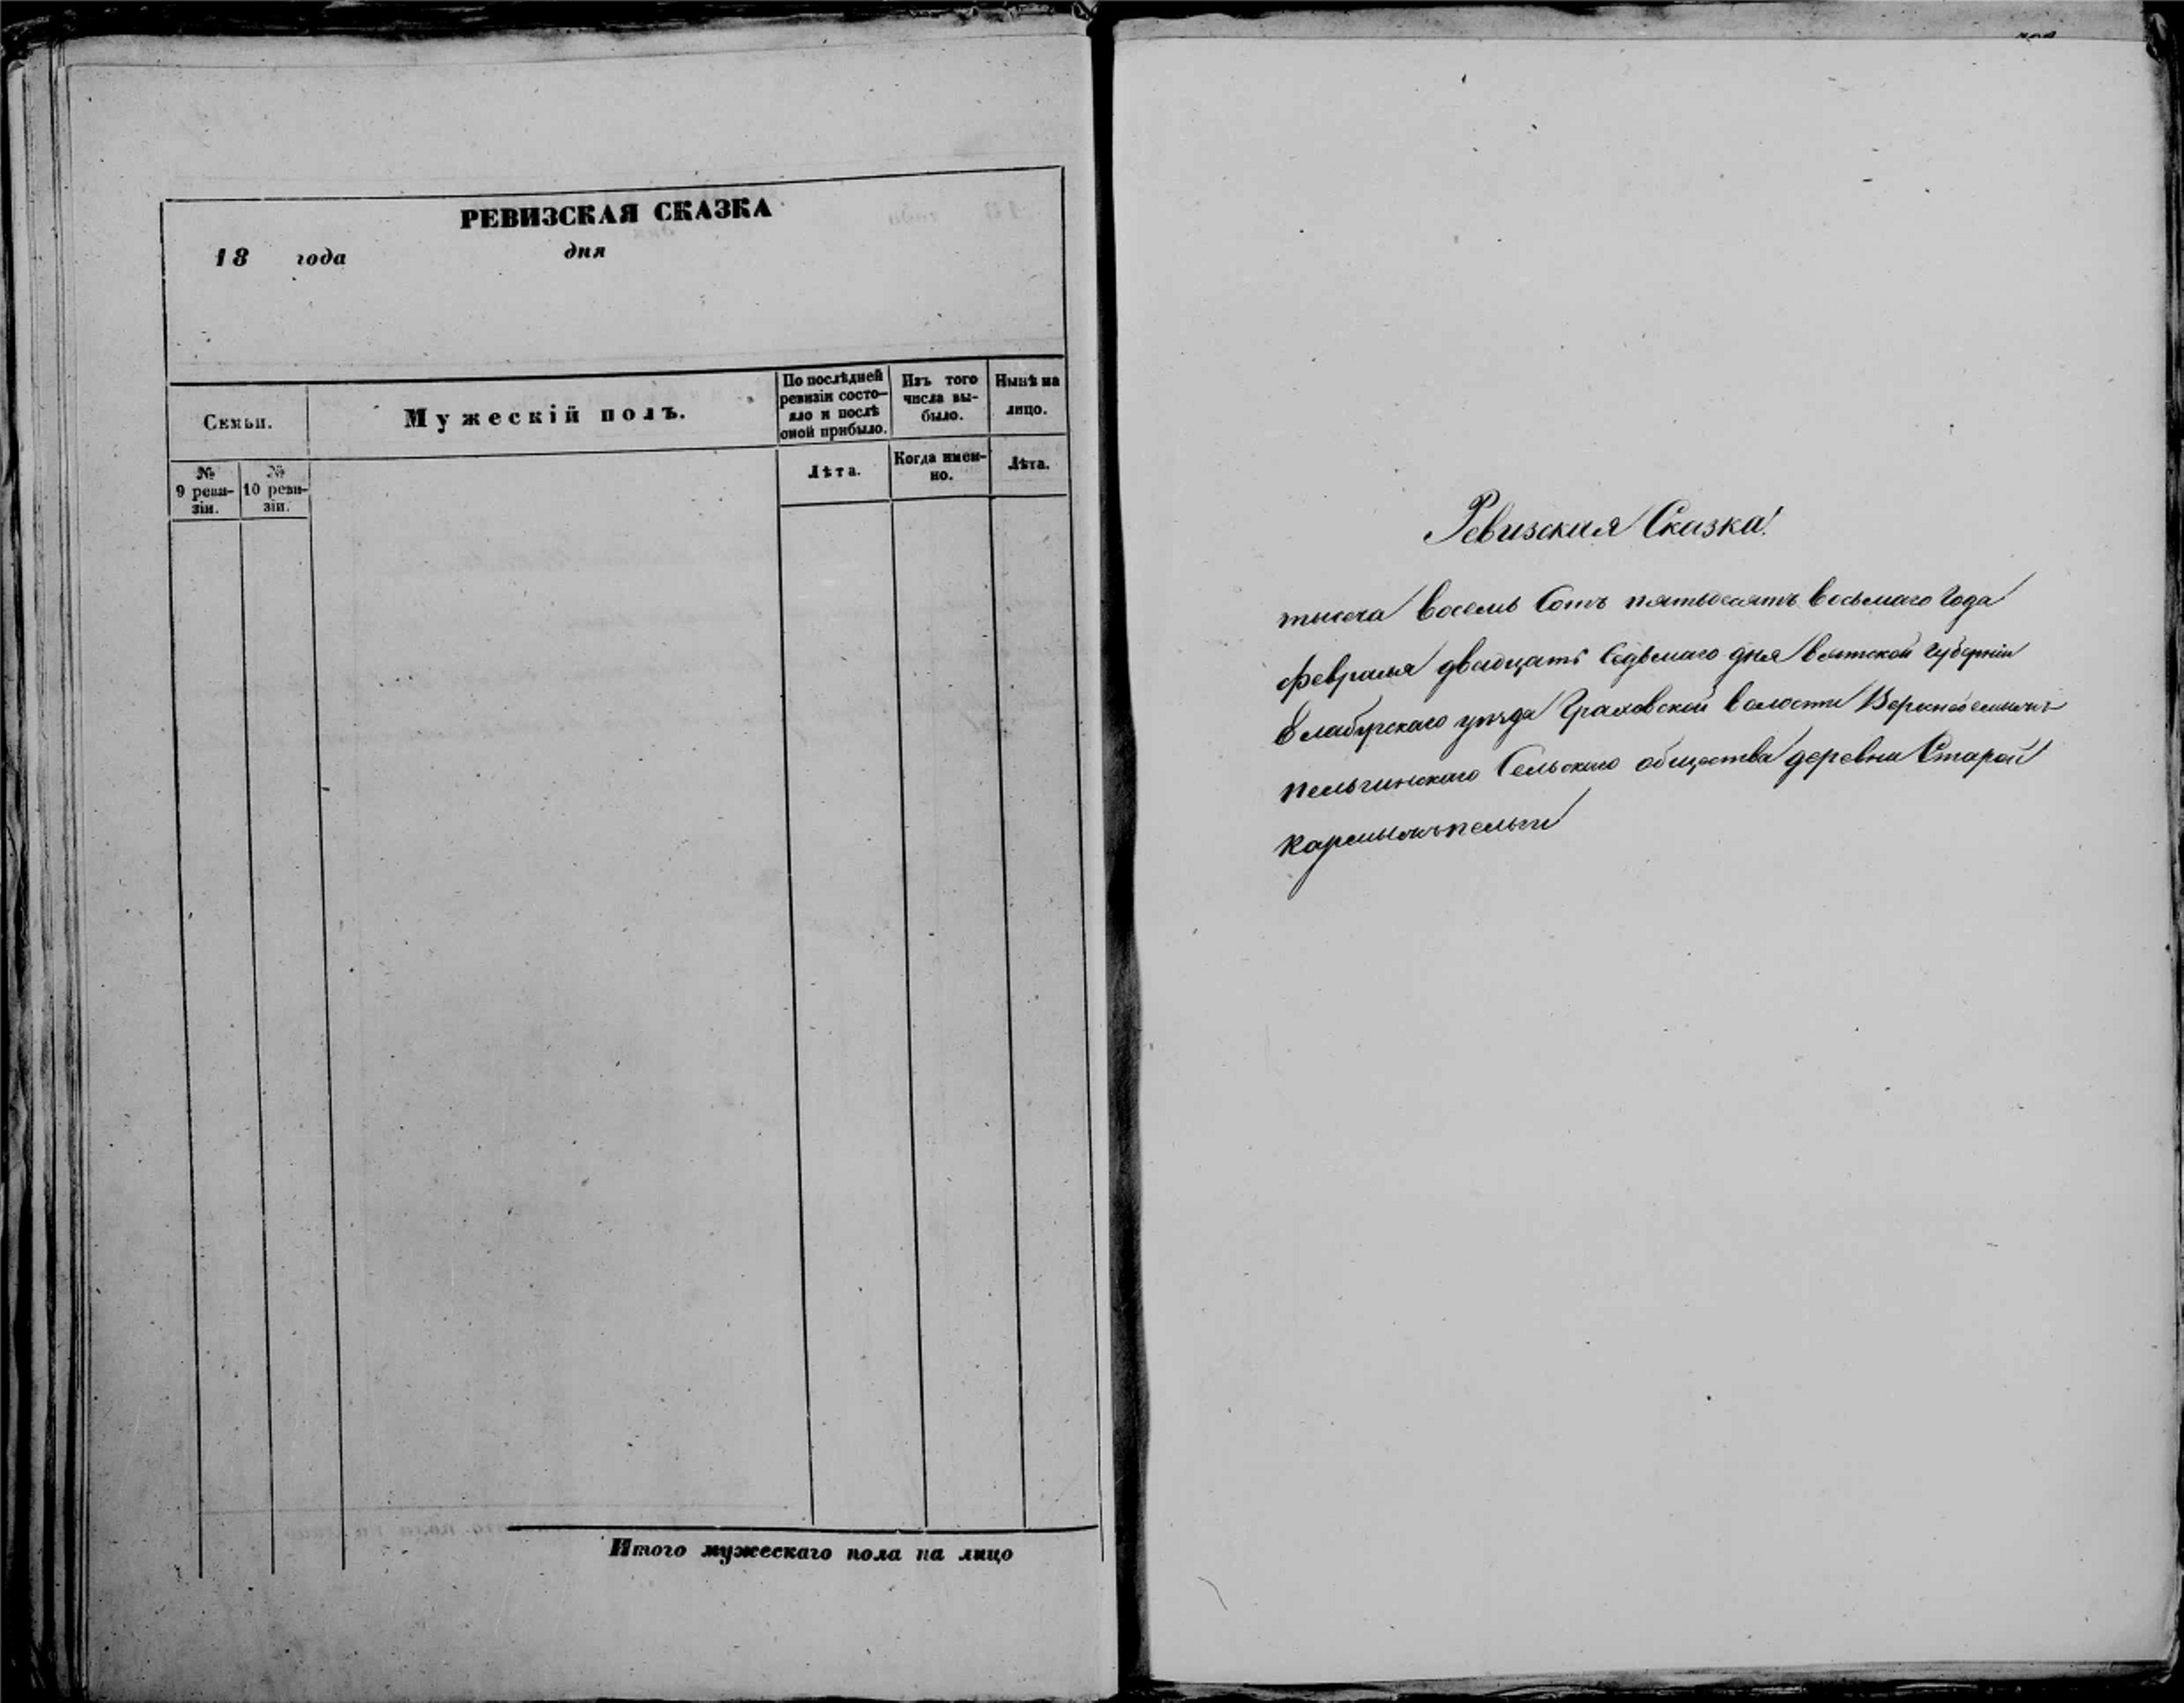 РЕВИЗСКАЯ СКАЗКА
18 года дня
Семьи.
Мужескій полъ.
По послѣдней
ревизіи состо-
яло и послѣ
оной прибыло.
Изъ того
числа вы-
было.
Нынѣ на
лицо.
№
9 реви-
зіи.
№
10 реви-
зіи.
Лѣта.
Когда имен-
но.
Лѣта.
Итого мужескаго пола на лицо
Ревизская Сказка
тысеча восемь Сотъ пятьдесятъ восьмаго Года
февраля двадцать Седьмаго дня вятской губерніи
Елабугскаго уѣзда Граховской волости
пельгинскаго Сельскаго общества деревни Старой
кармыжъпельги